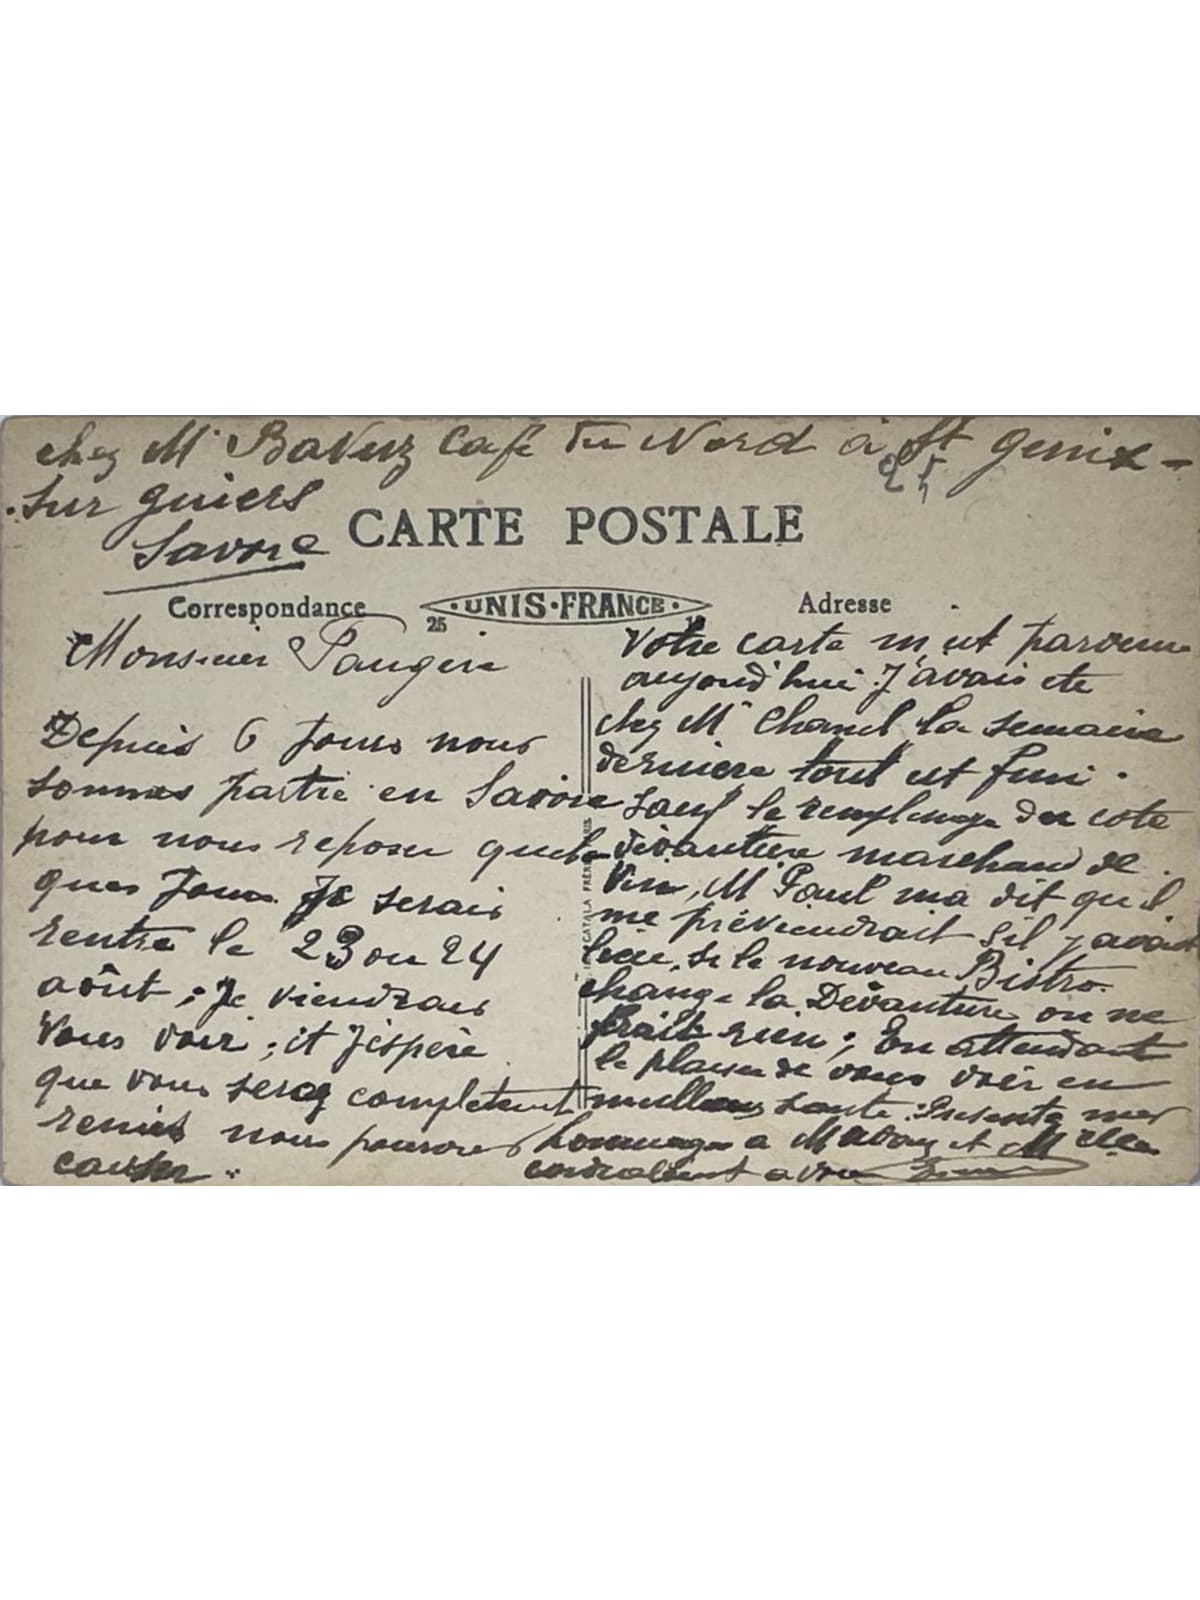 chez Mr Bavuz Café du Nord à St Genix-
sur guiers
Savoie
25
CARTE POSTALE
Correspondance
UNIS-FRANCE
25
Adresse
Monsieur
Depuis 6 Jours nous
sommes partie en Savoie
pour nous reposer quel
ques Jours Je serais
rentre le 23 ou 24
août ; Je viendrais
Vous voir ; et J'éspère
que vous serez completemt
remis nous pourrons
causer
Votre carte m'est parvenue
aujourd'hui. J'avais ete
chez Mr la semaine
derniere tout est fini.
sauf le du cote
dévanture marchand de
Vin, M Paul ma dit qu'il
me préviendrait s'il y avait
lieu, si le nouveau Bistro
change la Dévanture on ne
frait rien ; En attendant
le plaisir de vous voir en
meilleure sante. Presente mes
hommages a Madame et Melle
cordialement a vous